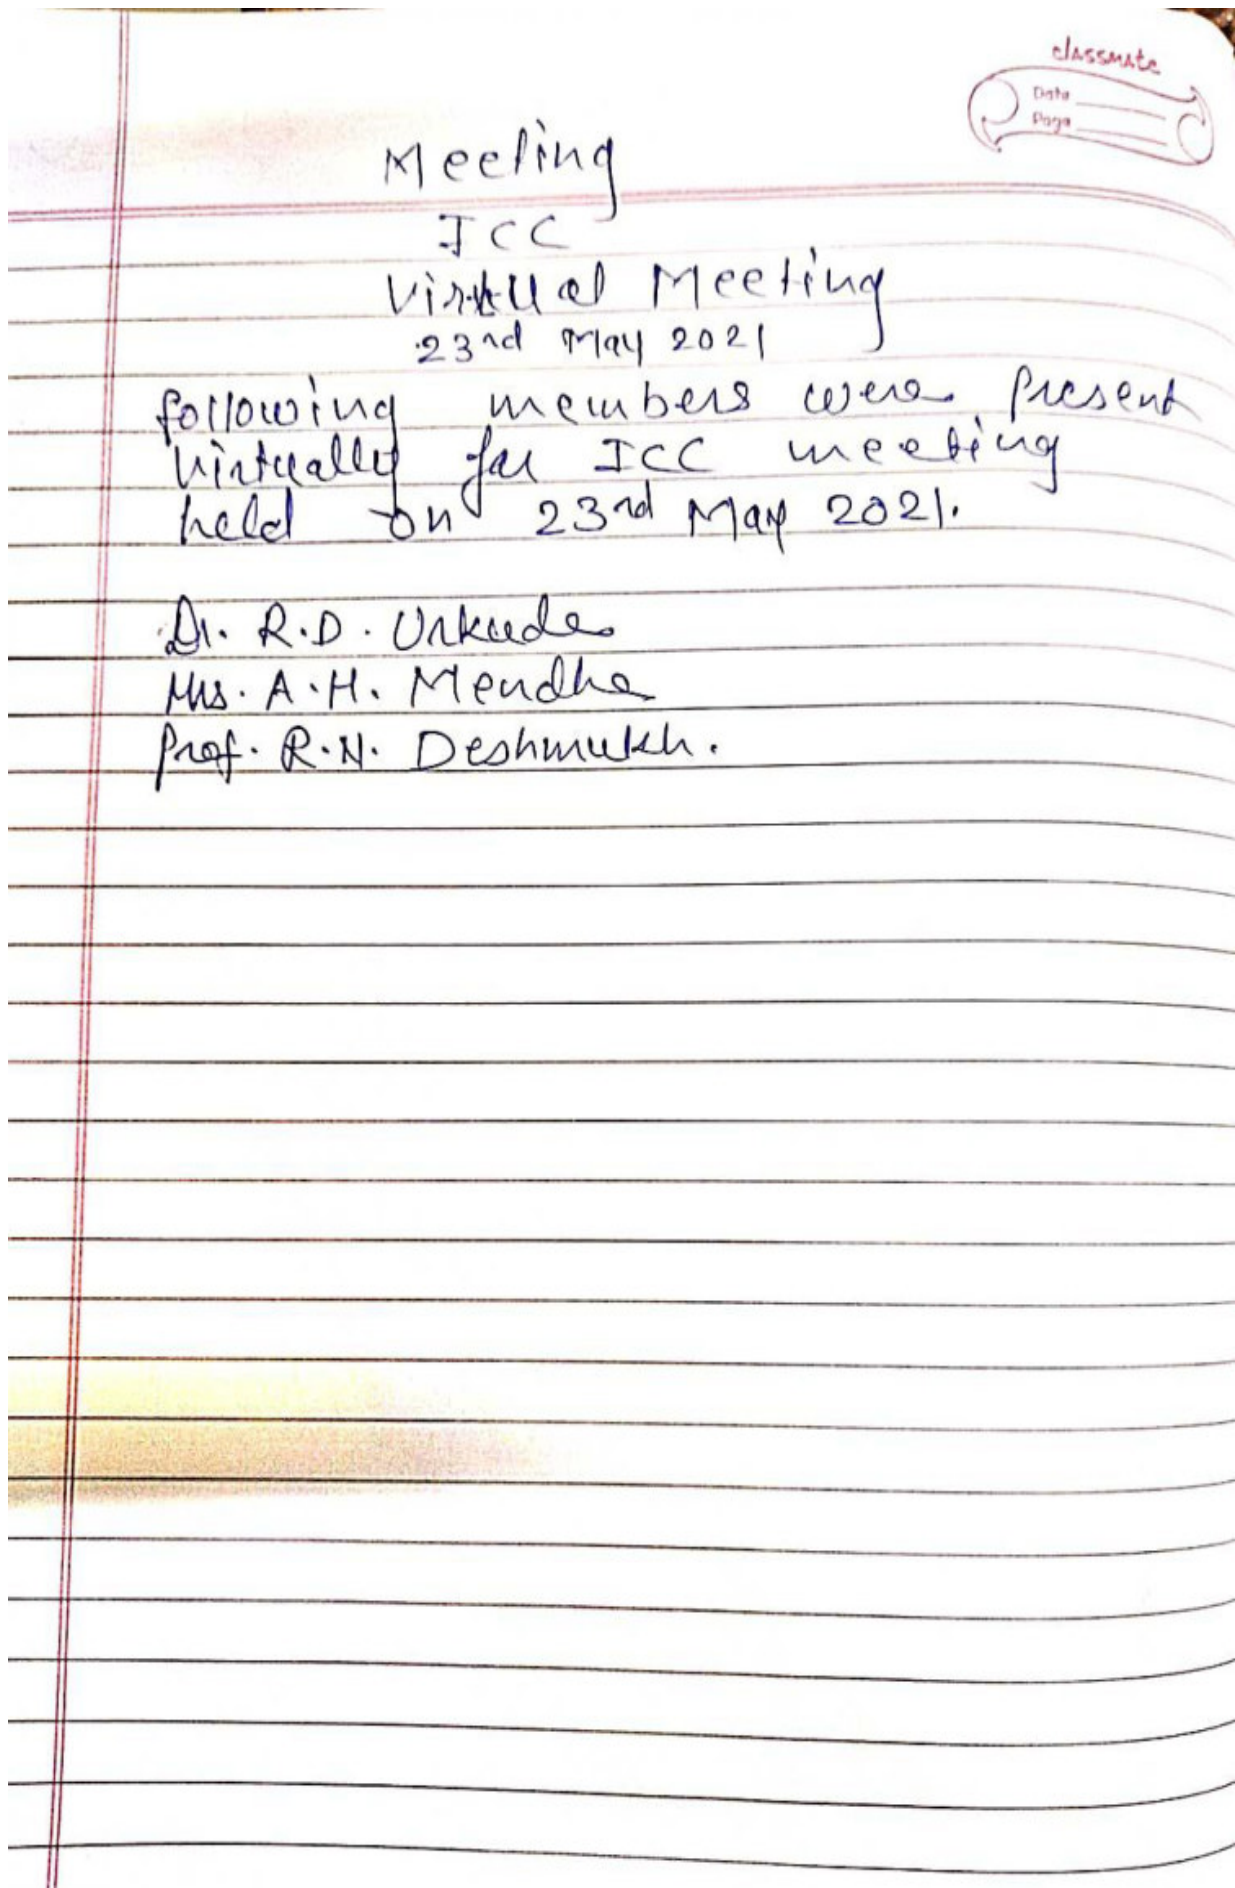 classmate
Date
Page
Meeting
ICC
Virtual Meeting
23rd May 2021
following members were present
virtually for ICC meeting
held on 23rd May 2021.
Dr. R.D. Urkude
Mrs. A.H. Mendhe
Prof. R.N. Deshmukh.